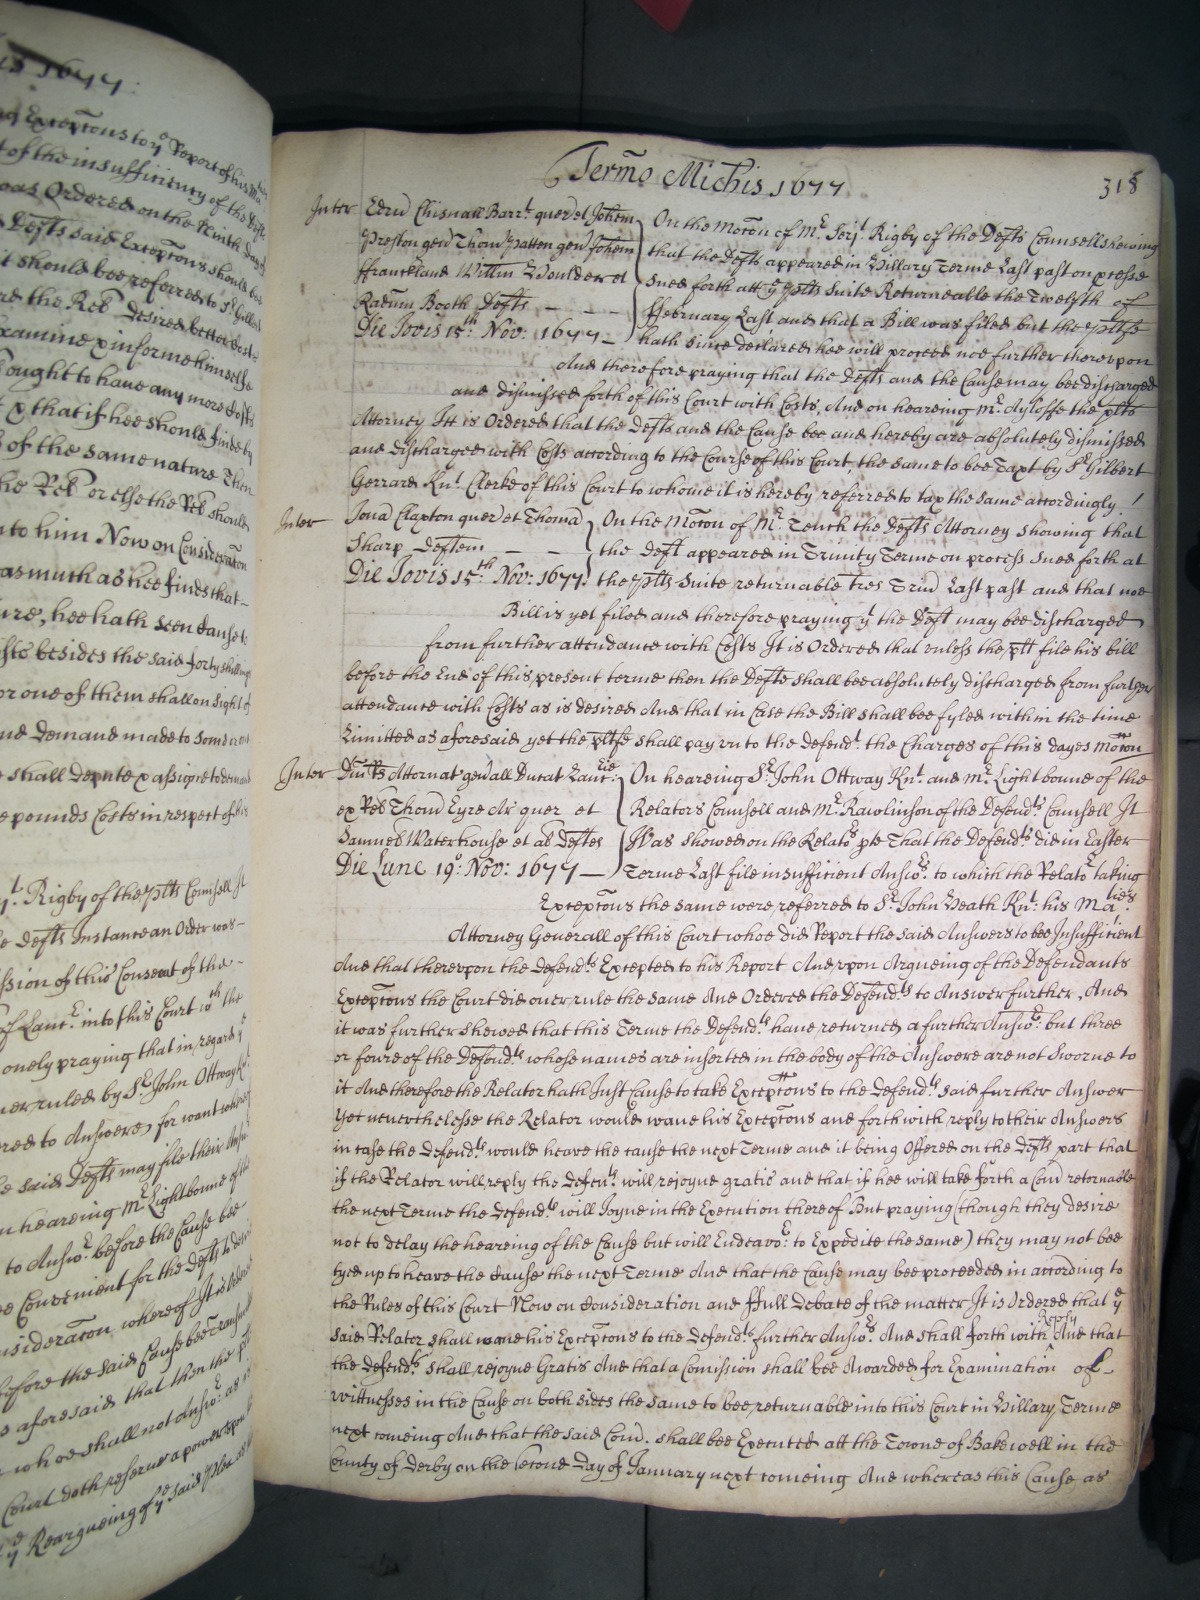 is 1677:
Exceptons to ye Report of his Ma
t of the insufficiency of the Defts
was Ordered on the Ninth Day of
Defts said Exceptons should bee
it should bee referred to Sr Gilbert
re the Relr desired better costs
Examine & informe himselfe
ought to have any more costs
& that if hee should finde by
of the same nature Then
the Relr or else the Relr should
nto him Now on Consideraton
asmuch as hee finds that –
ure, hee hath seen cause to
besides the said forty shillings
or one of them shall on sight of
and demand made to some or one
shall depute & assigne to demand
pounds Costs in respect of this
Rigby of the pltts Councell It
Defts Instance an Order was –
ssion of this Consent of the –
of Lancr. into this Court wth the
onely praying that in regard ye
over ruled by Sr John Ottway Knt
red to Answere, for want whereof
said Defts may file their Answ
n heareing Mr Lightboune of the
to Answr before the Cause bee
Convenient for the Defts to
nsideraton whereof It is Ordered
before the said Cause bee
aforesaid that then the
whoe shall not Answr. as
Court doth reserve a power upon
ye Reargueing of ye said Plea
Termo Michis 1677 318
Inter Edru Chisnall Barrt. quer et Johem
Preston gen Thom Patten gen Johem
Franckland Willm Shoulder et
Radum Booth Defts – – –
Die Jovis 15th: Nov: 1677 –
On the Moton of Mr. Serjt. Rigby of the Defts Counsell shewing
that the Defts appeared in Hillary Terme Last past on processe
sued forth att ye pltts suite Returneable the Twelfth of
ffebruary Last and that a Bill was filed but the pltffe
hath since declared hee will proceed noe further thereupon
And therefore praying that the Defts and the Cause may bee discharged
and dismissed forth of this Court with Costs, And on heareing Mr. Ayloffe the pltts
Attorney Itt is Ordered that the Defts and the Cause bee and hereby are absolutely dismissed
and discharged with Costs according to the Course of this Court, the same to bee Taxt by Sr Gilbert
Gerrard Knt. Clerke of this Court to whome it is hereby referred to tax the same accordingly./
Inter Jona Claxton quer et Thoma
Sharp Deftem – – –
Die Jovis 15th Nov: 1677.
On the Moton of Mr. Tench the Defts Attorney showing that
the Deft appeared in Trinity Terme on process sued forth at
the pltts Suite returnable tres Trin Last past and that noe
Bill is yet filed and therefore praying yt the Deft may bee discharged
from further attendance with Costs It is Ordered that unless the pltt file his bill
before the End of this present terme then the Defts shall bee absolutely discharged from further
attendance with Costs as is desired And that in Case the Bill shall bee fyled within the time
Limitted as aforesaid yet the pltffe shall pay unto the Defendt. the Charges of this dayes Moton
Inter Attornat genall Ducat Lanc
ex Rel Thom Eyre Ar quer et
Samuel Waterhouse et al Deftes
Die Lune 19o: Nov: 1677 –
On heareing Sr. John Ottway Knt. and Mr. Lightboune of the
Relators Counsell and Mr. Rawlinson of the Defendts Counsell It
Was showed on the Relators pte That the Defendts did in Easter
Terme Last file insufficient Answrs. to which the Relator taking
Exceptons the same were referred to Sr. John Heath Knt. his Maties
Attorney Generall of this Court whoe did Report the said Answers to bee Insufficient
And that thereupon the Defendts Excepted to his Report And upon Argueing of the Defendants
Exceptons the Court did over rule the same And Ordered the Defendts to Answer further, And
it was further shewed that this Terme the Defendts have returned a further Answr. but three
or foure of the Defendts whose names are inserted in the body of the Answere are not Sworne to
it And therefore the Relator hath Just Cause to take Exceptons to the Defendts said further Answer
Yet neverthelesse the Relator would wave his Exceptons and forthwith reply to their Answers
in case the Defendts would heare the cause the next Terme and it being Offered on the Defts part that
if the Relator will reply the Defendts will rejoyne gratis and that if hee will take forth a Com retornable
the next Terme the Defendts will Joyne in the Execution thereof But praying (though they desire
not to delay the heareing of the Cause but will Endeavor. to Expedite the same) they may not bee
tyed up to heare the Cause the next Terme And that the Cause may bee proceeded in according to
the Rules of this Court Now on Consideration and ffull Debate of the matter It is Ordered that ye
said Relator shall wave his Exceptons to the Defendts further Answr And shall forth with ^Reply And that
the Defendts shall rejoyne Gratis And that a Comission shall bee Awarded for Examination of –
wittnesses in the Cause on both sides the same to bee returnable into this Court in Hillary Terme
next comeing And that the said Com. shall bee Executed att the Towne of Bakewell in the
County of Derby on the second Day of January next comeing And whereas this Cause as